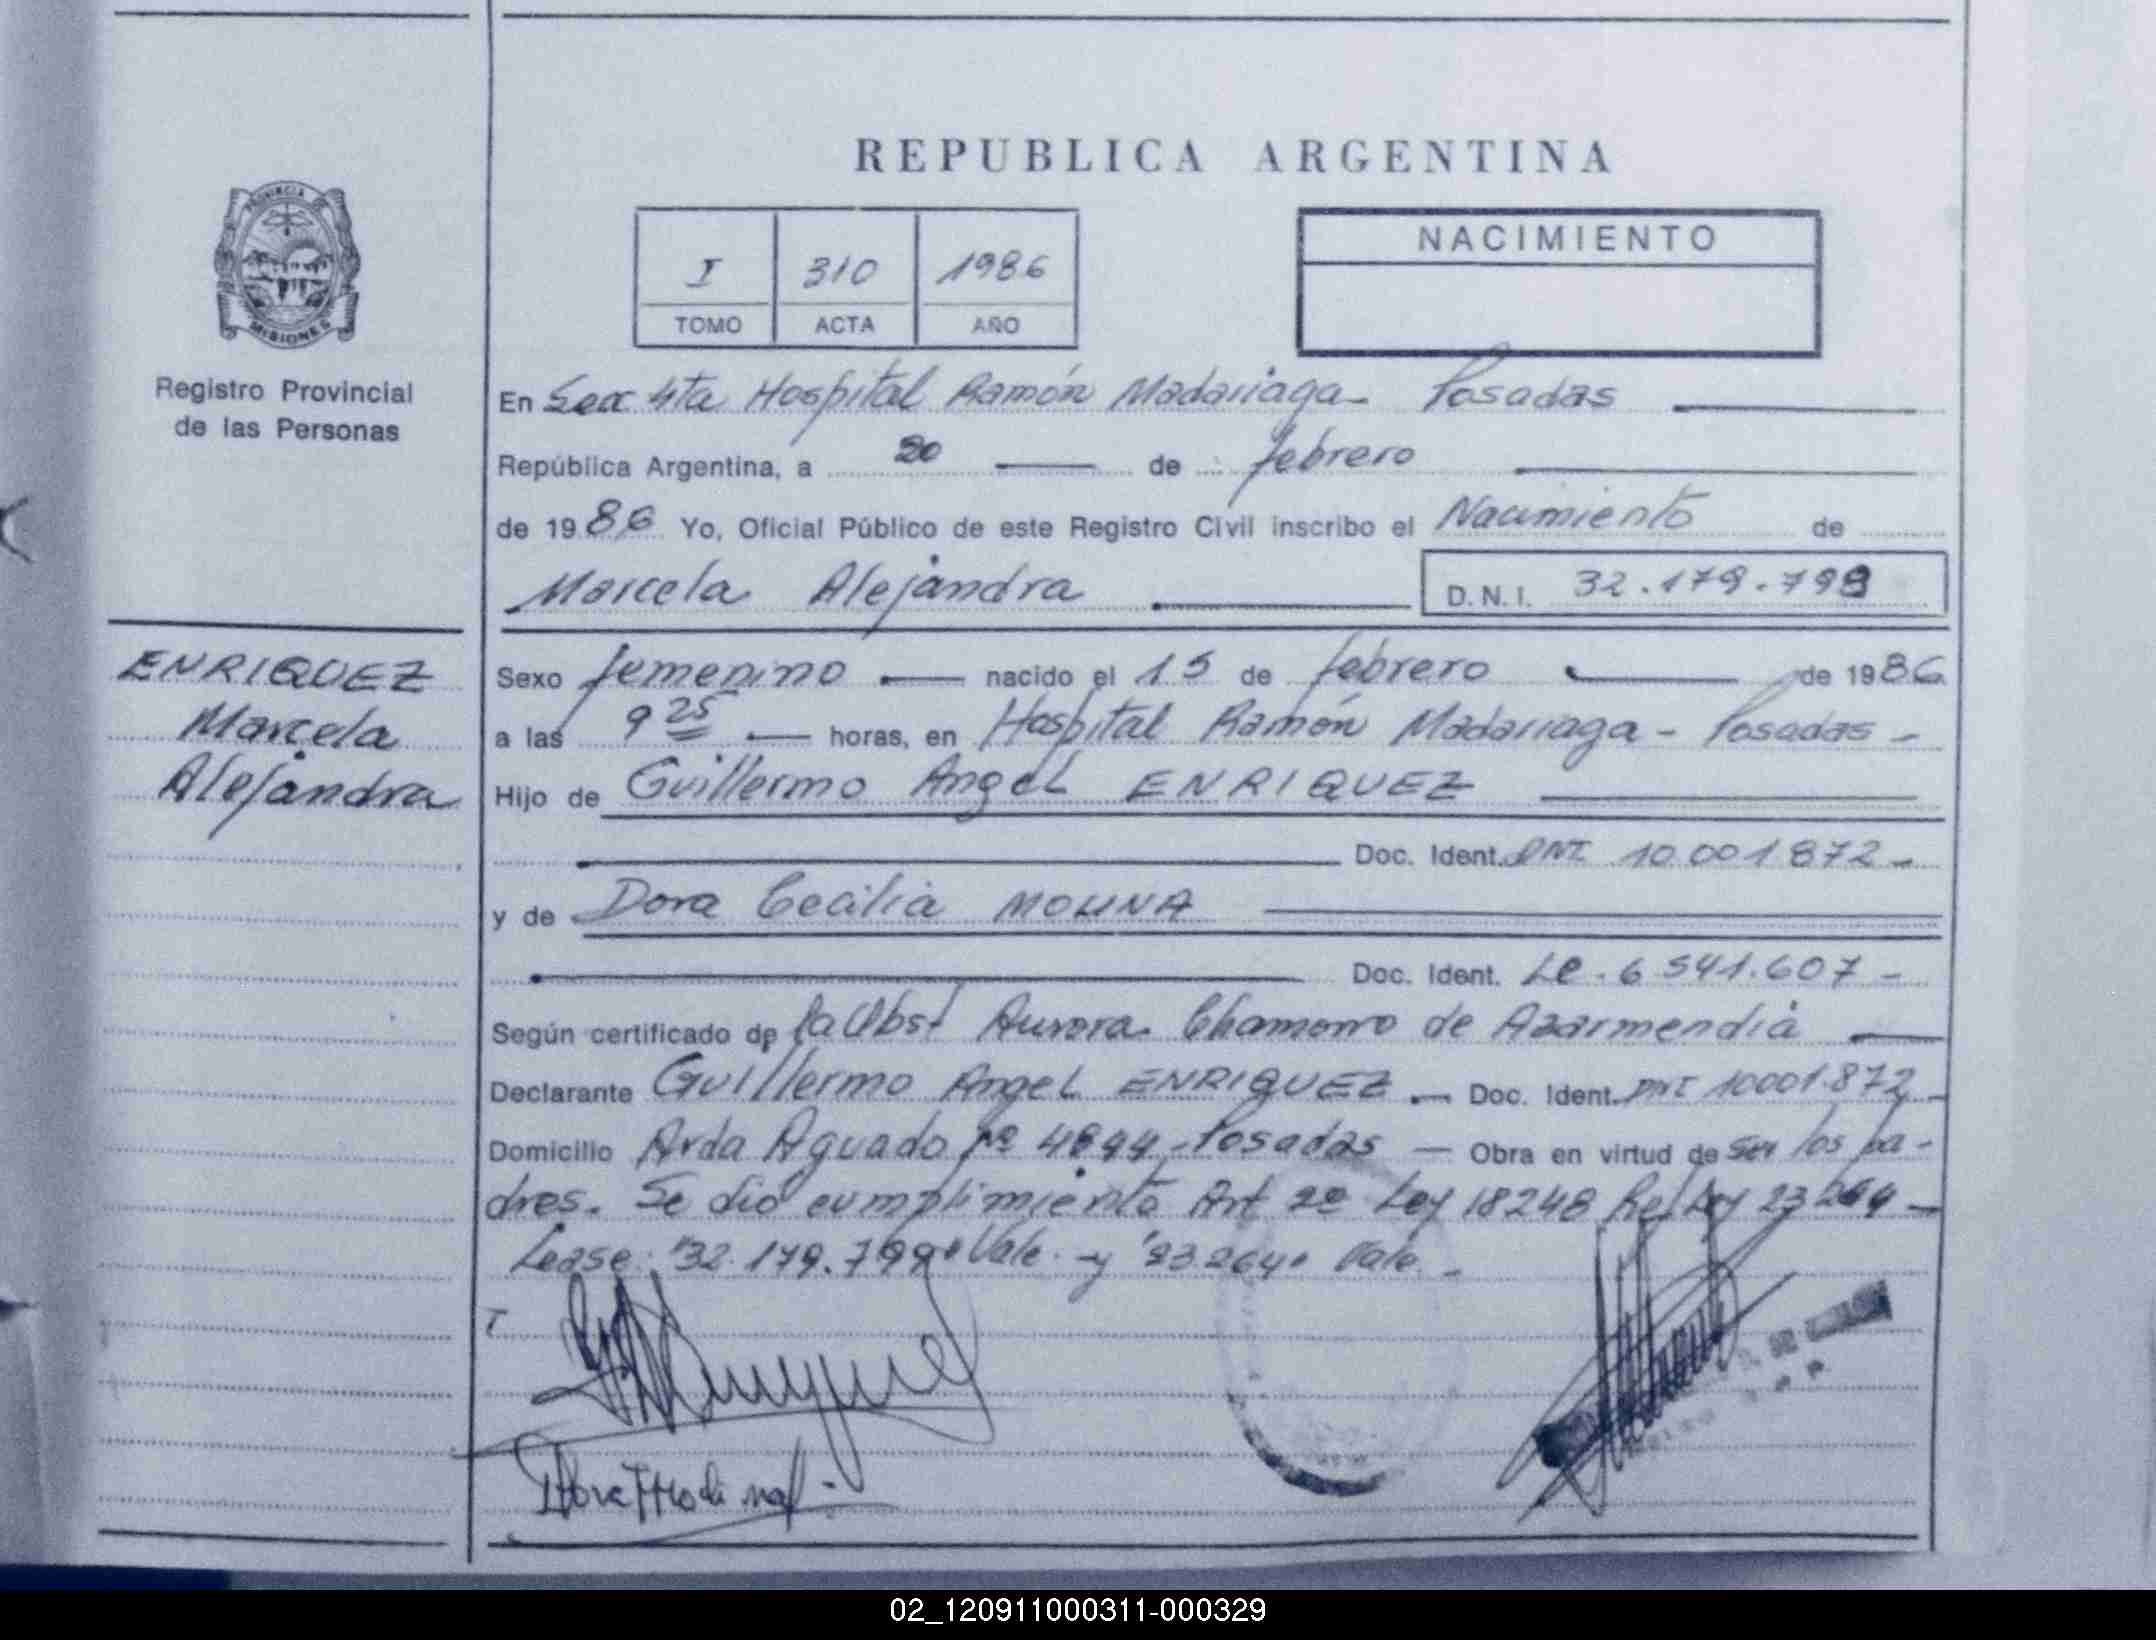 REPUBLICA ARGENTINA
PROVINCIA DE
MISIONES
Registro Provincial
de las Personas
I 310 1986
TOMO ACTA AÑO
NACIMIENTO
En Secc 4ta Hospital Ramón Madariaga - Posadas
República Argentina, a 20 de febrero
de 1986 Yo, Oficial Público de este Registro Civil inscribo el Nacimiento de
Marcela Alejandra D.N.I. 32.179.799
ENRIQUEZ
Marcela
Alejandra
Sexo femenino nacido el 15 de febrero de 1986
a las 9 25 horas, en Hospital Ramón Madariaga - Posadas -
Hijo de Guillermo Angel ENRIQUEZ
Doc. Ident. DNI 10.001.872 -
y de Dora Cecilia MOLINA
Doc. Ident. LC - 6 541.607 -
Según certificado de la Obst Aurora Chamorro de Azarmendia
Declarante Guillermo Angel ENRIQUEZ - Doc. Ident. DNI 10001.872 -
Domicilio Avda Aguado Nº Posadas - Obra en virtud de ser los pa-
dres. Se dio cumplimiento Art 2º Ley 18248 Ref Ley 23264 -
Lease: "32.179.799" Vale - y "23264" Vale -
02_120911000311-000329